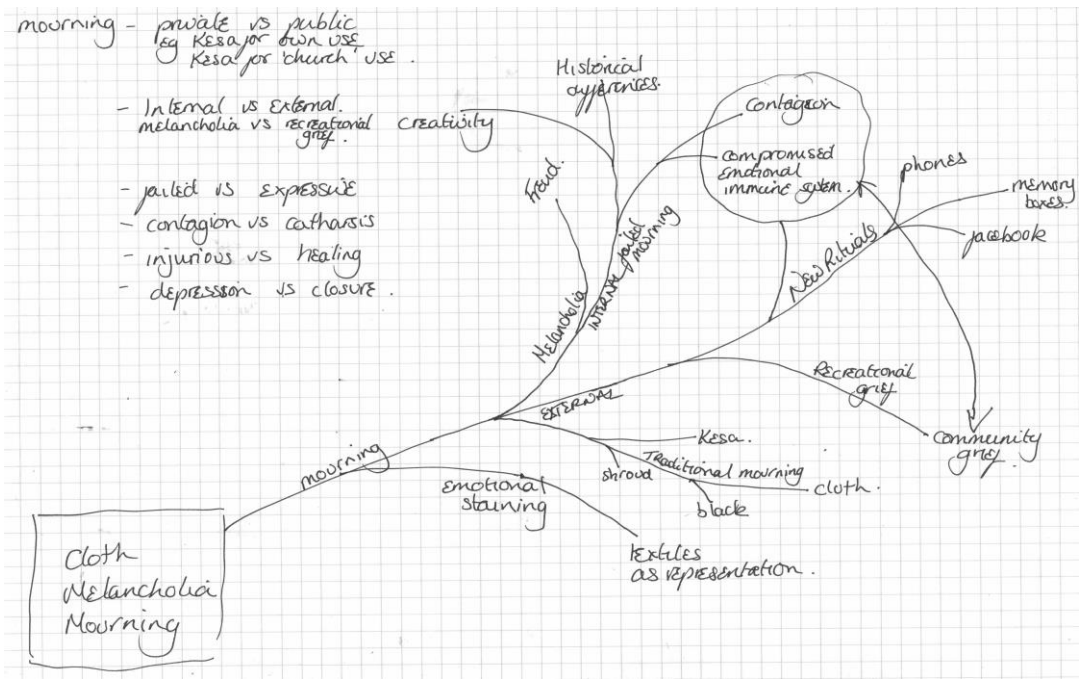 mourning - private vs public
eg Kesa for own use
Kesa for 'church' use.
- Internal vs External.
melancholia vs recreational
grief.
- jailed vs expressive
- contagion vs catharsis
- injurious vs healing
- depresssion vs closure.
Historical
differences.
creativity
Freud.
Melancholia
INTERNAL jailed
mourning
contagion
compromised
Emotional
immune system.
phones
memory
boxes.
facebook
New Rituals
Recreational
grief
community
grief.
EXTERNAL
Kesa.
shroud
Traditional mourning
cloth.
black
mourning
Emotional
staining
textiles
as representation.
Cloth
Melancholia
Mourning